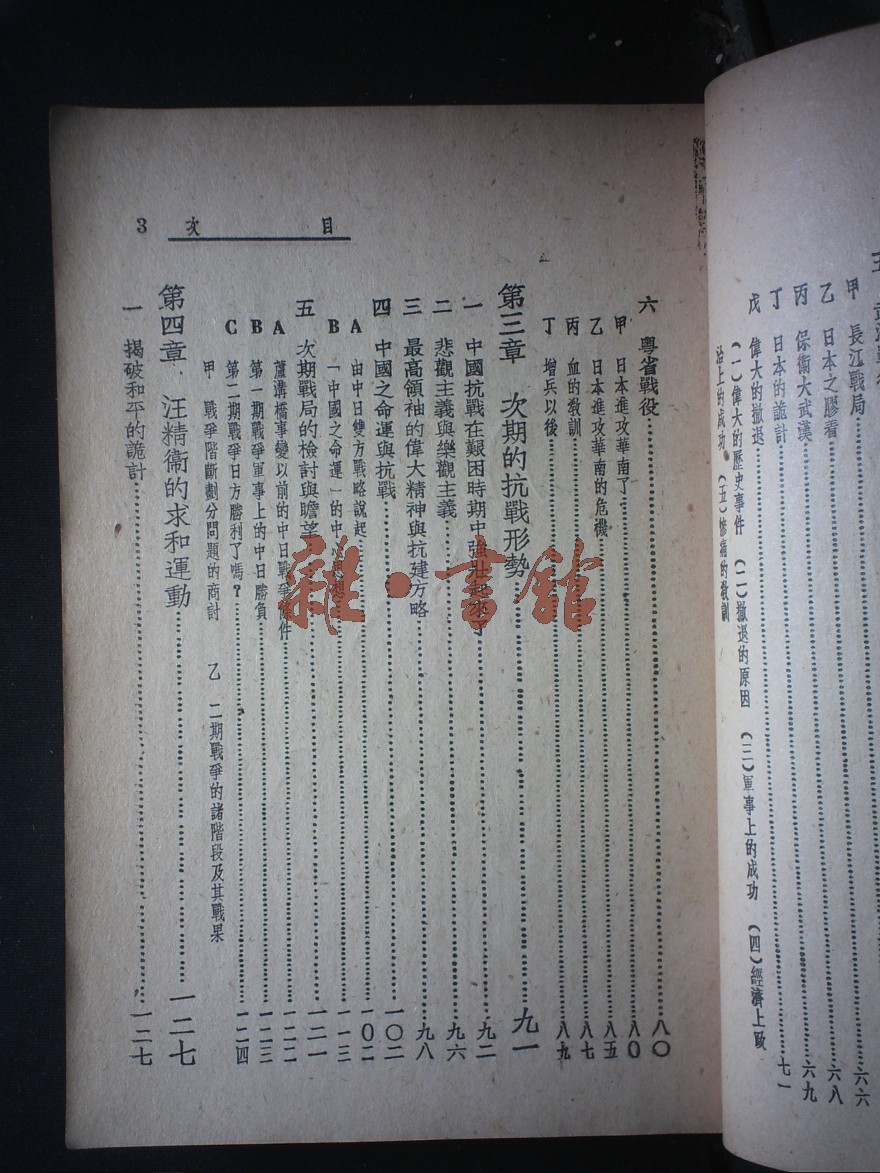 甲　長江戰局 六六
乙　日本之膠着 六八
丙　保衛大武漢 六九
丁　日本的詭計 七一
戊　偉大的撤退
（一）偉大的歷史事件　（二）撤退的原因　（三）軍事上的成功　（四）經濟上
治上的成功　（五）慘痛的教訓
目次 3
六　粵省戰役 八〇
甲　日本進攻華南了 八〇
乙　日本進攻華南的危機 八五
丙　血的教訓 八七
丁　增兵以後 八九
第三章　次期的抗戰形勢 九一
一　中國抗戰在艱困時期中強壯起來了 九二
二　悲觀主義與樂觀主義 九六
三　最高領袖的偉大精神與抗建方略 九八
四　中國之命運與抗戰 一〇二
A　由中日雙方戰略說起 一〇二
B　「中國之命運」的中 一一三
五　次期戰局的檢討與瞻望 一二一
A　蘆溝橋事變以前的中日戰爭條件 一二二
B　第一期戰爭軍事上的中日勝負 一二三
C　第二期戰爭日方勝利了嗎？ 一二四
甲　戰爭階斷劃分問題的商討　乙　二期戰爭的諸階段及其戰果
第四章．汪精衞的求和運動 一二七
一　揭破和平的詭計 一二七
雜·書館